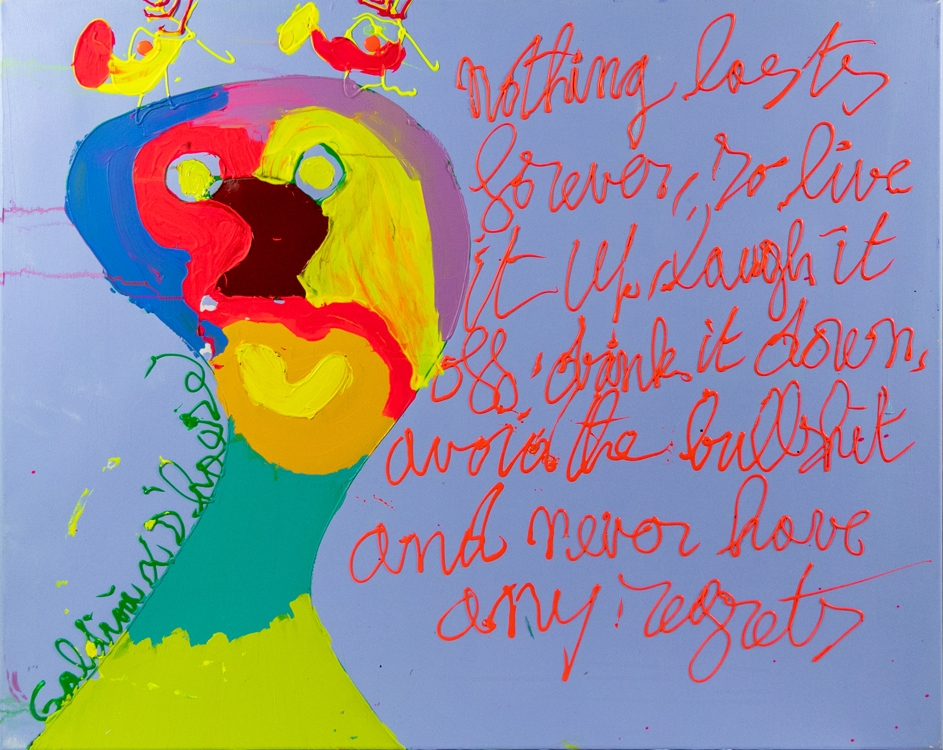 nothing lasts
forever, so live
it up, Laugh it
off, drink it down,
avoid the bullshit
and never have
any regrets